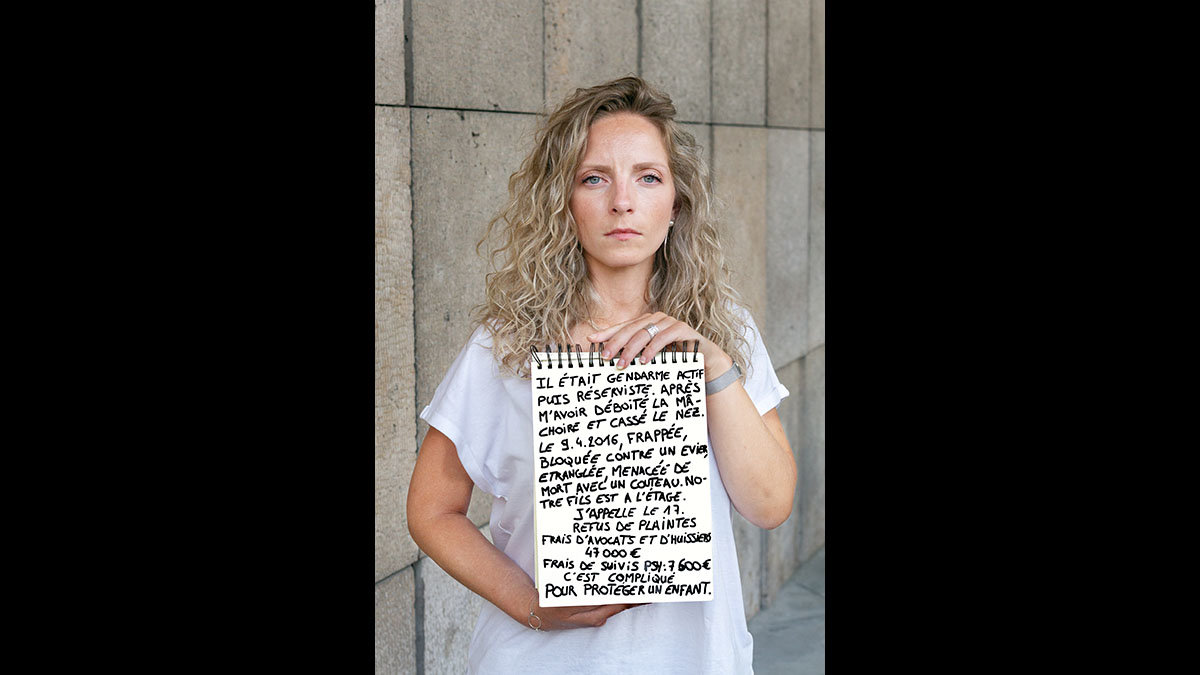 IL ÉTAIT GENDARME ACTIF
PUIS RÉSERVISTE. APRÈS
M'AVOIR DÉBOITÉ LA MÂ-
CHOIRE ET CASSÉ LE NEZ.
LE 9.4.2016, FRAPPÉE,
BLOQUÉE CONTRE UN EVIER,
ETRANGLÉE, MENACÉE DE
MORT AVEC UN COUTEAU. NO-
TRE FILS EST A L'ÉTAGE.
J'APPELLE LE 17.
REFUS DE PLAINTES
FRAIS D'AVOCATS ET D'HUISSIERS
47000 €
FRAIS DE SUIVIS PSY: 7600 €
C'EST COMPLIQUÉ
POUR PROTÉGER UN ENFANT.